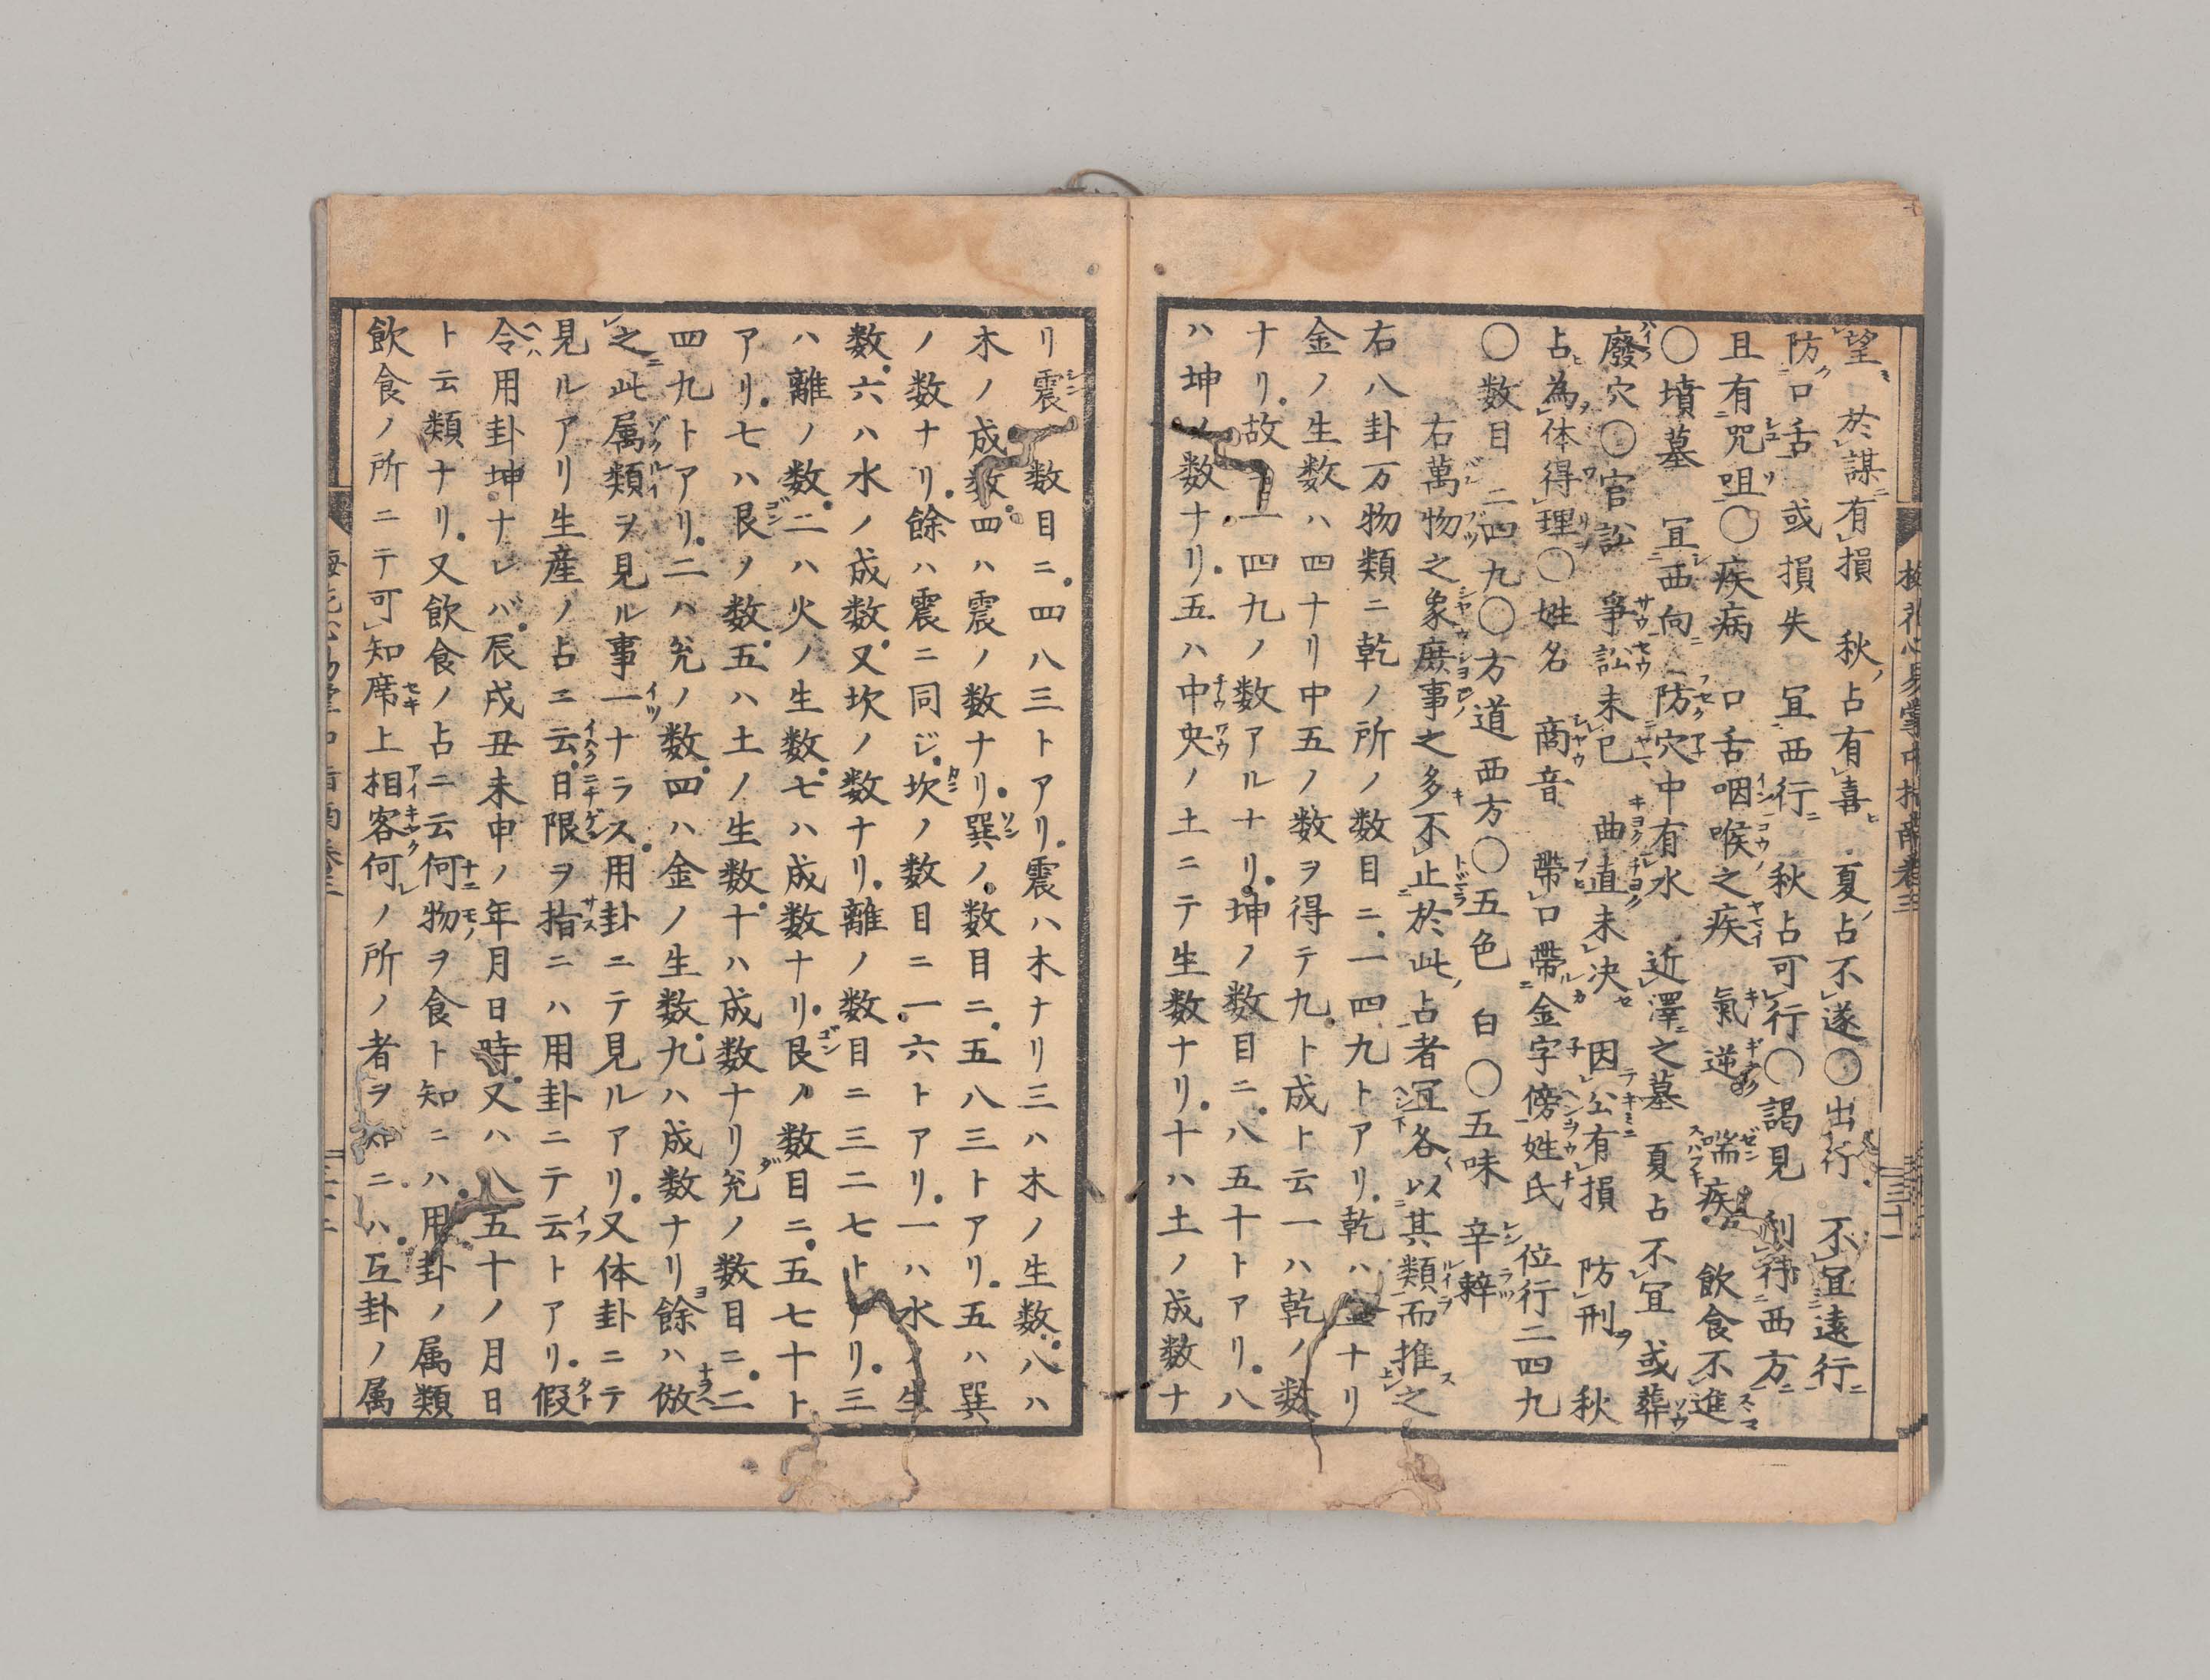 望於謀有損 秋占有喜 夏占不遂〇出行 不宜遠行
防口舌 或損失 宜西行 秋占可行〇謁見 利行西方
且有咒咀〇疾病 口舌咽喉之疾 氣逆喘疾 飲食不進
〇墳墓 宜西向 防穴中有水 近澤之墓 夏占不宜 或葬
廢穴〇官訟 爭訟未已 曲直未决 因公有損 防刑 秋
占為体得理〇姓名 商音 帶口帶金字傍姓氏 位行二四九
〇数目 二四九〇方道 西方〇五色 白〇五味 辛辣
右萬物之象庶事之多不止於此占者宜各以其類而推之
右八卦万物類ニ乾ノ所ノ数目ニ一四九トアリ乾ハ金ナリ
金ノ生数ハ四ナリ中五ノ数ヲ得テ九ト成ト云一ハ乾ノ数
ナリ故ニ一四九ノ数アルナリ坤ノ数目ニ八五十トアリ八
ハ坤ノ数ナリ五ハ中央ノ土ニテ生数ナリ十ハ土ノ成数ナ
リ震ノ数目ニ四八三トアリ震ハ木ナリ三ハ木ノ生数八ハ
木ノ成数四ハ震ノ数ナリ巽ノ数目ニ五八三トアリ五ハ巽
ノ数ナリ餘ハ震ニ同ジ坎ノ数目ニ一六トアリ一ハ水ノ生
数六ハ水ノ成数又坎ノ数ナリ離ノ数目ニ三二七トアリ三
ハ離ノ数二ハ火ノ生数七ハ成数ナリ艮ノ数目ニ五七十ト
アリ七ハ艮ノ数五ハ土ノ生数十ハ成数ナリ兌ノ数目ニ二
四九トアリ二ハ兌ノ数四ハ金ノ生数九ハ成数ナリ餘ハ倣
之此属類ヲ見ル事一ナラス用卦ニテ見ルアリ又体卦ニテ
見ルアリ生産ノ占ニ云日限ヲ指ニハ用卦ニテ云トアリ假
令用卦坤ナレバ辰戌丑未申ノ年月日時又ハ八五十ノ月日
ト云類ナリ又飲食ノ占ニ云何物ヲ食ト知ニハ用卦ノ属類
飲食ノ所ニテ可知席上相客何ノ所ノ者ヲ知ニハ互卦ノ属